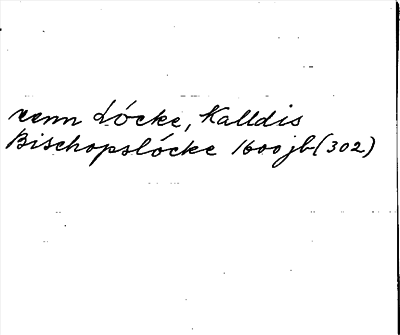 venn Lócke, Kalldis
Bischopslócke 1600 jb (302)